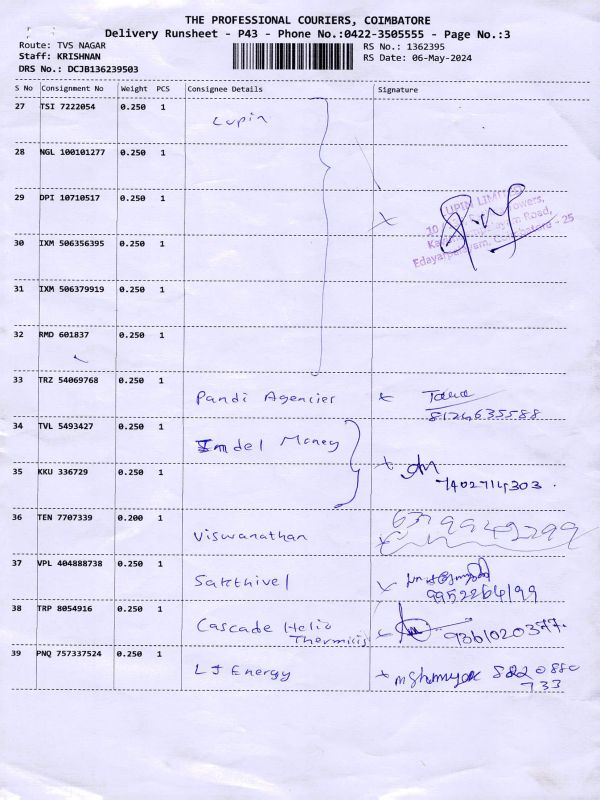 THE PROFESSIONAL COURIERS, COIMBATORE
Delivery Runsheet - P43 - Phone No.:0422-3505555 - Page No.:3
Route: TVS NAGAR RS No.: 1362395
Staff: KRISHNAN RS Date: 06-May-2024
DRS No.: DCJB136239503
S No Consignment No Weight PCS Consignee Details Signature
27 TSI 7222054 0.250 1 Lupin
28 NGL 100101277 0.250 1
29 DPI 10710517 0.250 1
LUPIN LIMITED
10
Road,
Edayarpalayam, Coimbatore - 25
30 IXM 506356395 0.250 1
31 IXM 506379919 0.250 1
32 RMD 601837 0.250 1
33 TRZ 54069768 0.250 1 Pandi Agencies
8124635588
34 TVL 5493427 0.250 1 Indel Money
35 KKU 336729 0.250 1
7402714303.
36 TEN 7707339 0.200 1 Viswanathan 6379949299
37 VPL 404888738 0.250 1 Sakthivel
9952264199
38 TRP 8054916 0.250 1 Cascade Helio
Thermics 9361020377.
39 PNQ 757337524 0.250 1 LJ Energy
733